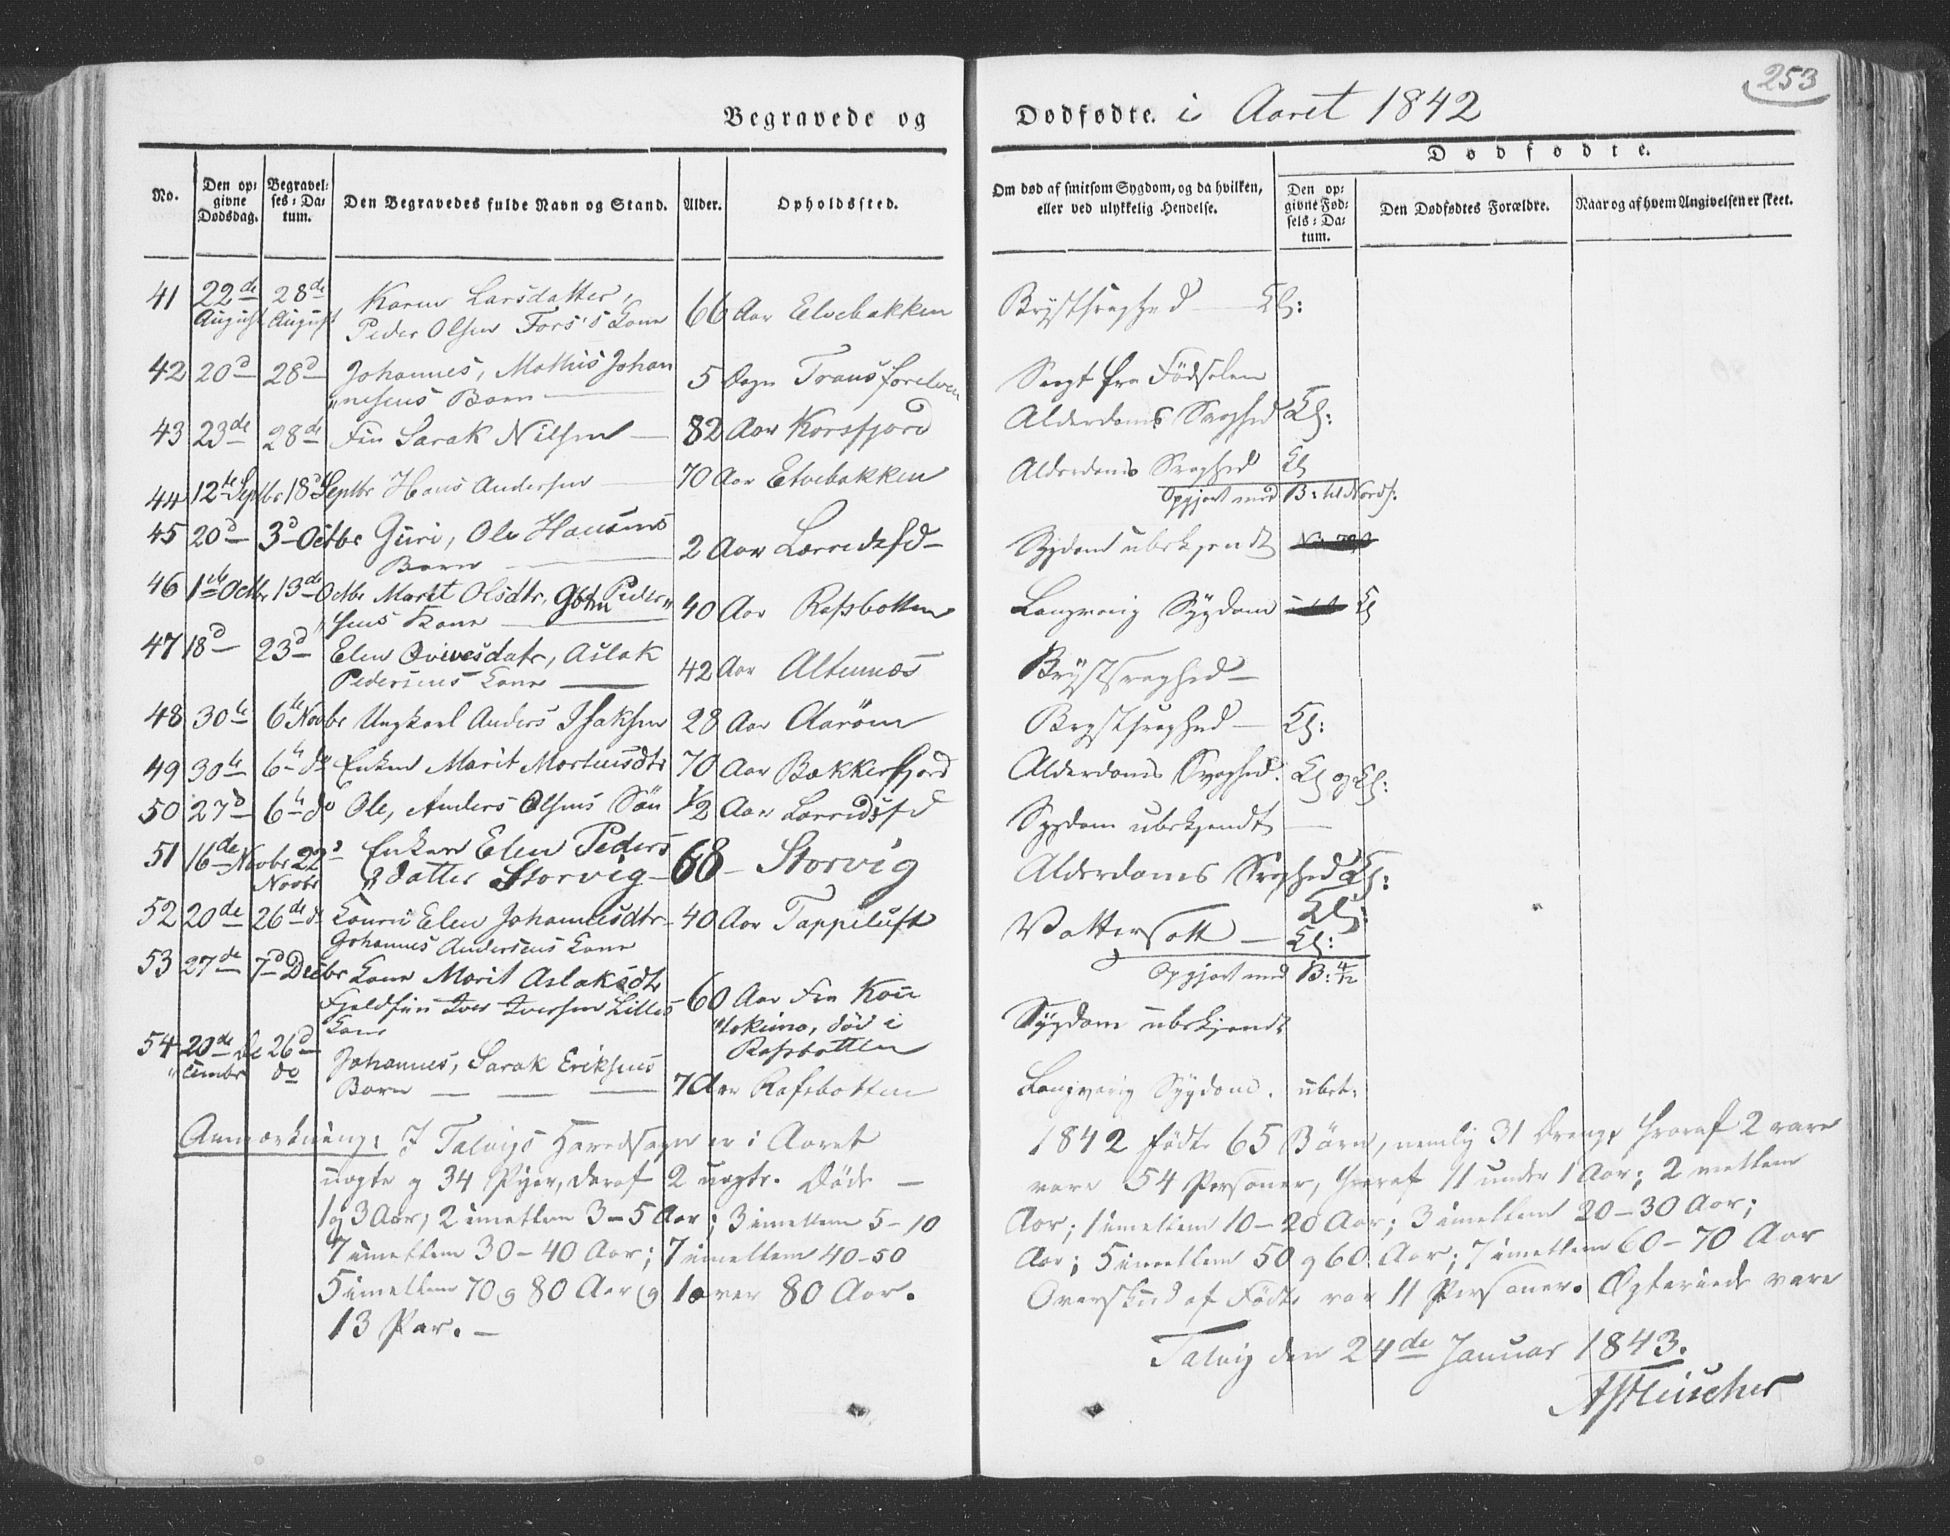 253
Begravede og Dødfødte. i Aaret 1842
Dødfødte.
No.
Den op-
givne
Dødsdag.
Begravel-
ses-Da-
tum.
Den Begravedes fulde Navn og Stand.
Alder.
Opholdssted.
Om død af smitsom Sygdom, og da hvilken,
eller ved ulykkelig Hendelse.
Den op-
givne Fød-
sels-Da-
tum.
Den Dødfødtes Forældre.
Naar og af hvem Angivelsen er skeet.
41 22de August 28de August Karen Larsdatter,
Peder Olsen Fors's Kone 66 Aar Elvebakken Brystsvaghed — Kl:
42 20d 28d Johannes, Mathis Johan
"nesens Barn 5 Dage Transforelven Svagt fra Födselen
43 23de 28de Fin Sarak Nilsen 82 Aar Korsfjord Alderdoms Svaghed Kl:
44 12te Septbr 18d Septbr Hans Andersen 70 Aar Elvebakken Alderdoms Svaghed Kl
Opgjort med B: til Nordf:
45 20d 3d Octbr Guri, Ole Hansens
Barn 2 Aar Lerredsfd Sygdom ubekjendt
46 1ste Octbr 13de Octbr Marit Olsdtr, Gbm Peder"
"sens Kone 40 Aar Rafsbotten Langvarig Sygdom Kl
47 18d 23d Elen Qvivesdatr, Aslak
Pedersens Kone 42 Aar Altennæs Brystsvaghed
48 30te 6te Novbr Ungkarl Anders Isaksen 28 Aar Aarøen Brystsvaghed Kl:
49 30te 6te do Enken Marit Mortensdtr 70 Aar Bækkerfjord Alderdoms Svaghed. Kl og Kl:
50 27d 6te do Ole, Anders Olsens Sön 1/2 Aar Lerredsfd Sygdom ubekjendt
51 16de Novbr 22d Novbr Enken Elen Peders
datter Storvig 68 Storvig Alderdoms Svaghed Kl:
52 20de 26de do Konen Elen Johannesdtr
Johannes Andersens Kone 40 Aar Tappeluft Vattersott Kl:
Kl:
Opgjort med B: 4/12
53 27de 7d Decbr Kone Marit Aslaksdtr
Fjeldfin Iver Iversen Lilles
Kone 60 Aar Fra Kou
"tokeino, död i
Rafsbotten Sygdom ubekjendt
54 20de De
"cembr 26d do Johannes, Sarak Eriksens
Barn 7 Aar Rafsbotten Langvarig Sygdom. ubet:
Anmærkning: I Talvigs Herredsogn er i Aaret 1842 födte 65 Börn, nemlig 31 Drenge hvoraf 2 vare
uægte og 34 Piger, deraf 2 uægte. Döde — vare 54 Personer, hvoraf 11 under 1 Aar; 2 mellem
1 og 3 Aar; 2 imellem 3-5 Aar; 3 imellem 5-10 Aar; 1 imellem 10-20 Aar; 3 imellem 20-30 Aar;
7 imellem 30-40 Aar; 7 imellem 40-50 Aar; 5 imellem 50 og 60 Aar; 7 imellem 60-70 Aar
5 imellem 70 og 80 Aar og 1 over 80 Aar. Overskud af Födte var 11 Personer. Ægteviede vare
13 Par.
Talvig den 24de Januar 1843.